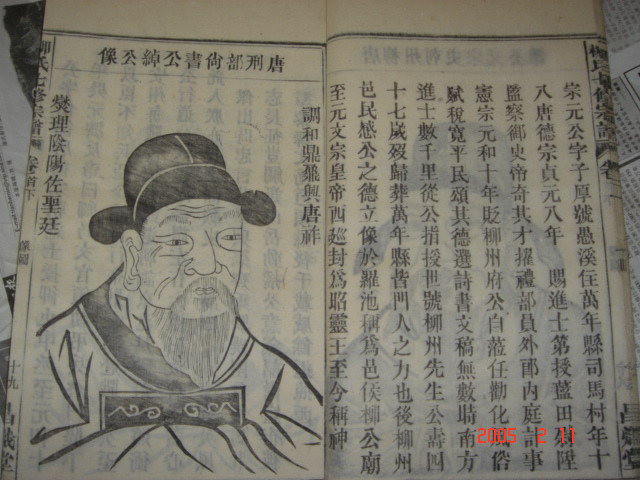 宗元公字子厚號愚溪住萬年縣司馬村年十
八唐德宗貞元八年 賜進士第授藍田尉陞
監察御史帝奇其才擢禮部員外郎內庭計事
憲宗元和十年貶柳州府公自蒞任勸化民俗
賦稅寬平民頌其德選詩書文稿無數時南方
進士數千里從公指授世號柳州先生公壽四
十七歲歿歸葬萬年縣皆門人之力也後柳州
邑民感公之德立像於羅池稱爲邑侯柳公廟
至元文宗皇帝西廵封爲昭靈王至今稱神
唐刑部尙書公綽公像
調和鼎鼐興唐祥
燮理陰陽佐聖廷
柳氏七修宗譜 卷首下
十九
昌盛堂
柳氏七修宗譜 卷
2005 2 11